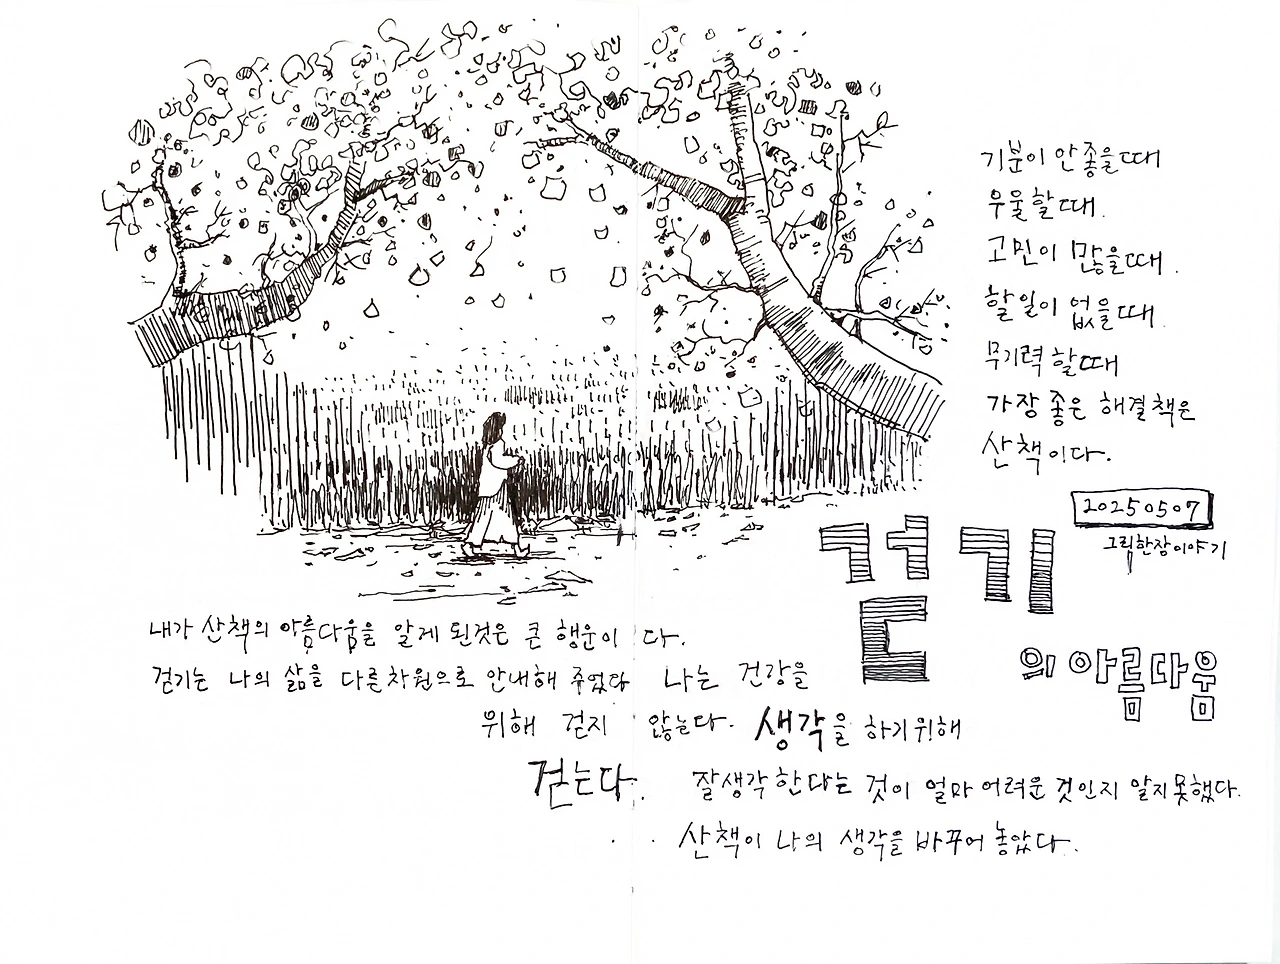 기분이 안좋을때
우울할때.
고민이 많을때.
할일이 없을때.
무기력할때
가장 좋은 해결책은
산책이다.
20250507
그림한장이야기
걷기
의 아름다움
내가 산책의 아름다움을 알게 된것은 큰 행운이다.
걷기는 나의 삶을 다른차원으로 안내해 주었다 나는 건강을
위해 걷지 않는다. 생각을 하기위해
걷는다. 잘생각한다는 것이 얼마 어려운 것인지 알지못했다.
산책이 나의 생각을 바꾸어 놓았다.